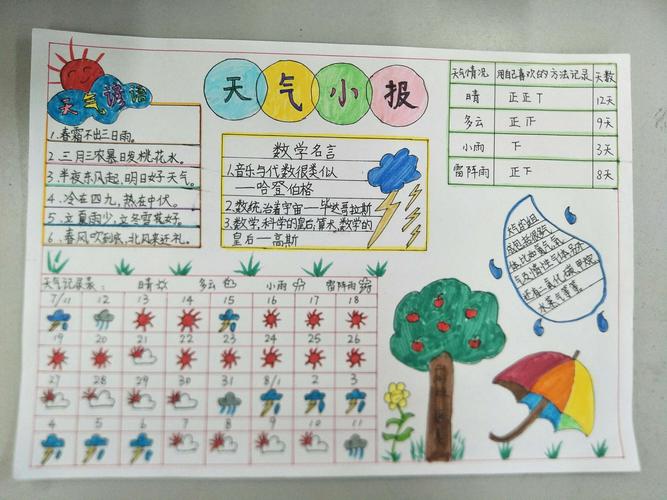 天气谚语
1.春霜不出三日雨。
2.三月三浓暴日发桃花水。
3.半夜东风起,明日好天气。
4.冷在四九,热在中伏。
5.立夏雨少,立冬雪花好。
6.春风吹到底,北风来还礼。
天气小报
数学名言
1.音乐与代数很类似
—哈登伯格
2.数统治着宇宙—毕达哥拉斯
3.数学,科学的皇后;算术,数学的
皇后—高斯
天气情况 用自己喜欢的方法记录 天数
晴 正正丅 12天
多云 正正 9天
小雨 下 3天
雷阵雨 正下 8天
大气的组
水蒸气等等。
天气记录表: 晴 多云 小雨 雷阵雨
7/11 12 13 14 15 16 17 18
19 20 21 22 23 24 25 26
27 28 29 30 31 8/1 2 3
4 5 6 7 8 9 10 11